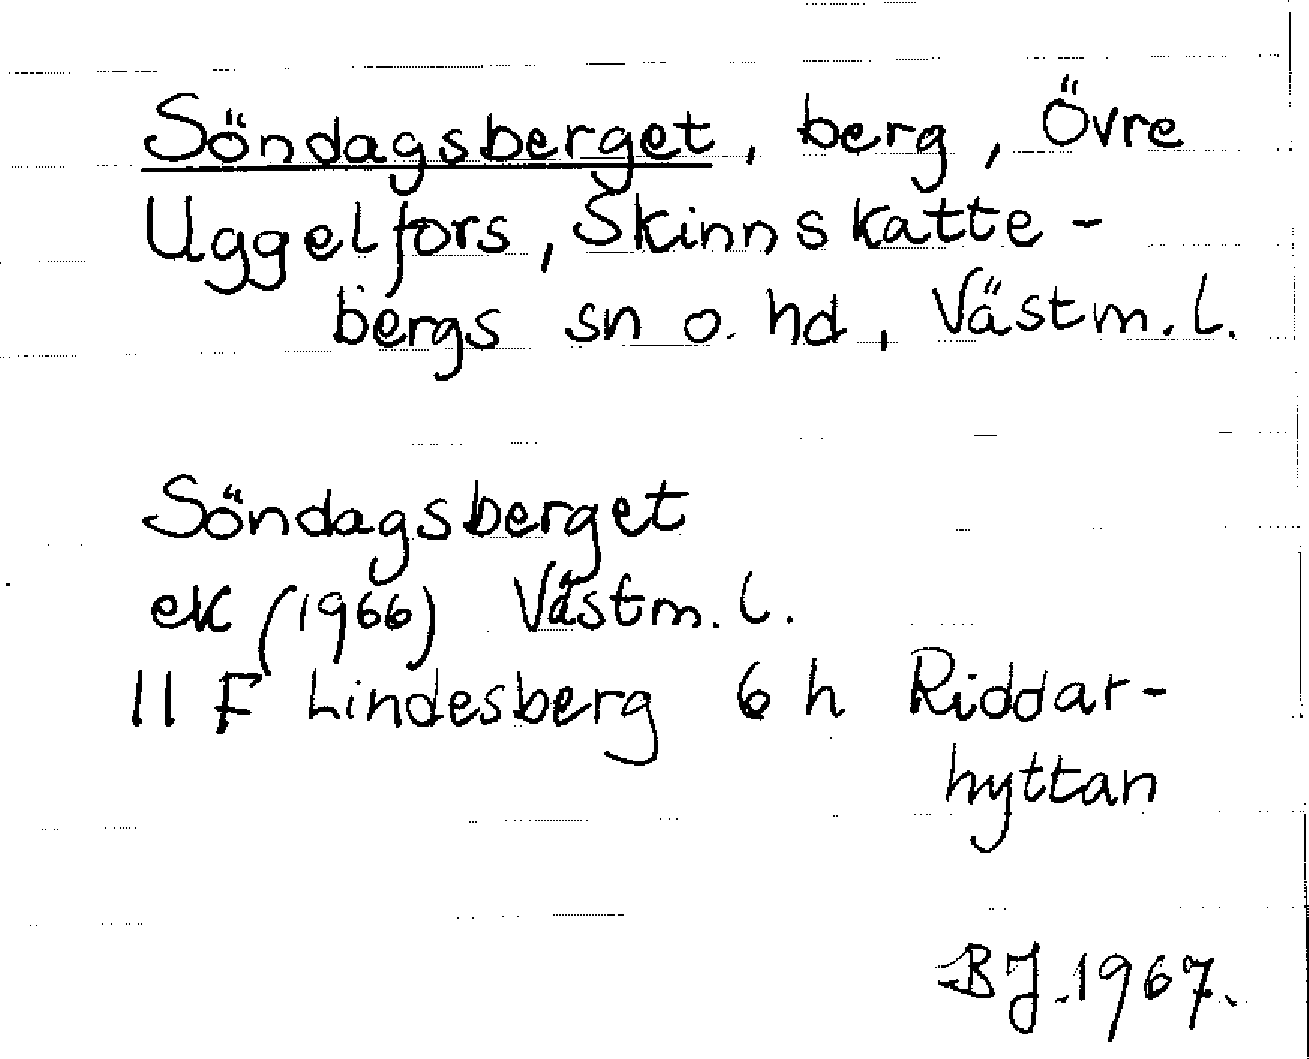 Söndagsberget, berg, Övre
Uggelfors, Skinnskatte-
bergs sn o. hd, Västm. l.
Söndagsberget
ek (1966) Västm. l.
11 F Lindesberg 6 h Riddar-
hyttan
BJ. 1967.